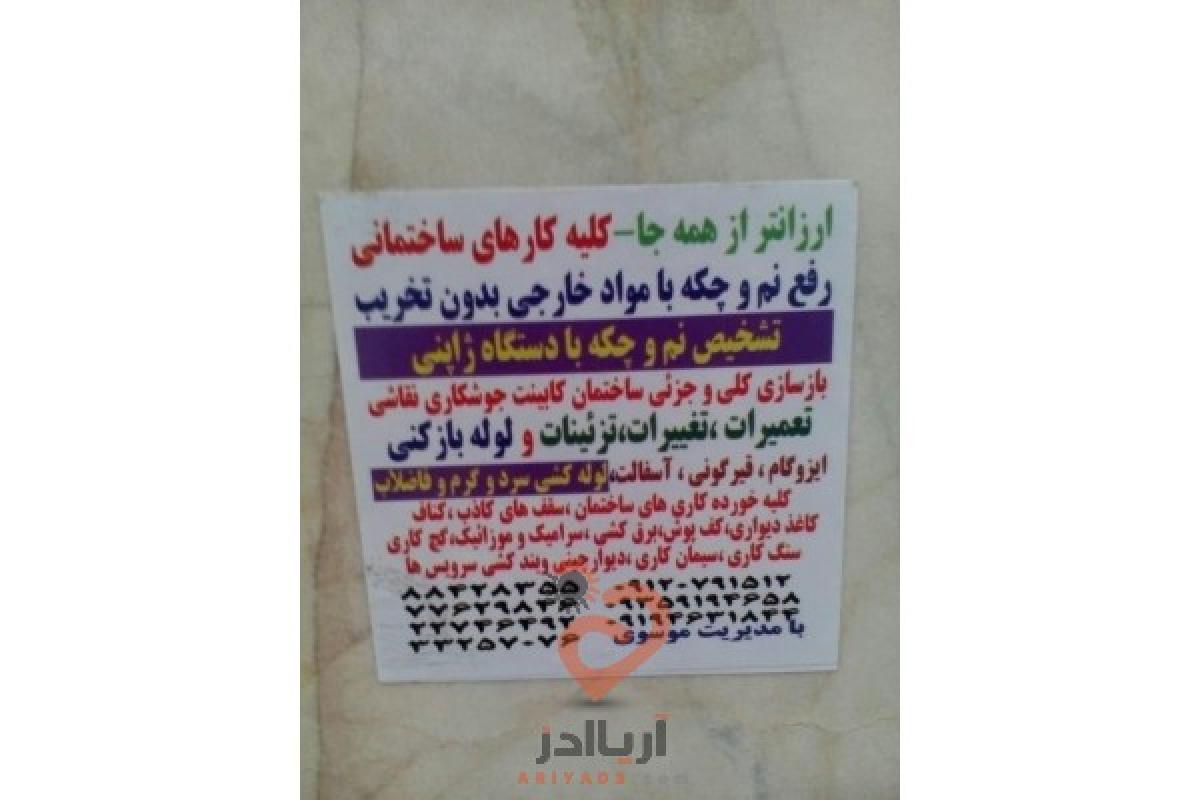 ارزانتر از همه جا-کلیه کارهای ساختمانی
رفع نم و چکه با مواد خارجی بدون تخریب
تشخیص نم و چکه با دستگاه ژاپنی
بازسازی کلی و جزئی ساختمان کابینت جوشکاری نقاشی
تعمیرات ،تغییرات،تزئینات و لوله بازکنی
ایزوگام ، قیرگونی ، آسفالت،لوله کشی سرد و گرم و فاضلاب
کلیه خورده کاری های ساختمان ،سقف های کاذب ،کناف
کاغذ دیواری،کف پوش،برق کشی ،سرامیک و موزائیک،گچ کاری
سنگ کاری ،سیمان کاری ،دیوارچینی وبند کشی سرویس ها
۰۹۱۲۰۷۹۱۵۱۲ ۸۸۴۲۸۳۵۵
۰۹۳۵۹۱۹۴۶۵۸ ۷۷۶۲۹۸۳۶
۰۹۱۹۴۶۳۱۸۴۴ ۲۲۷۴۶۴۹۲
با مدیریت موسوی ۳۳۲۵۷۰۷۶
آریاادز
ARIYADS.com